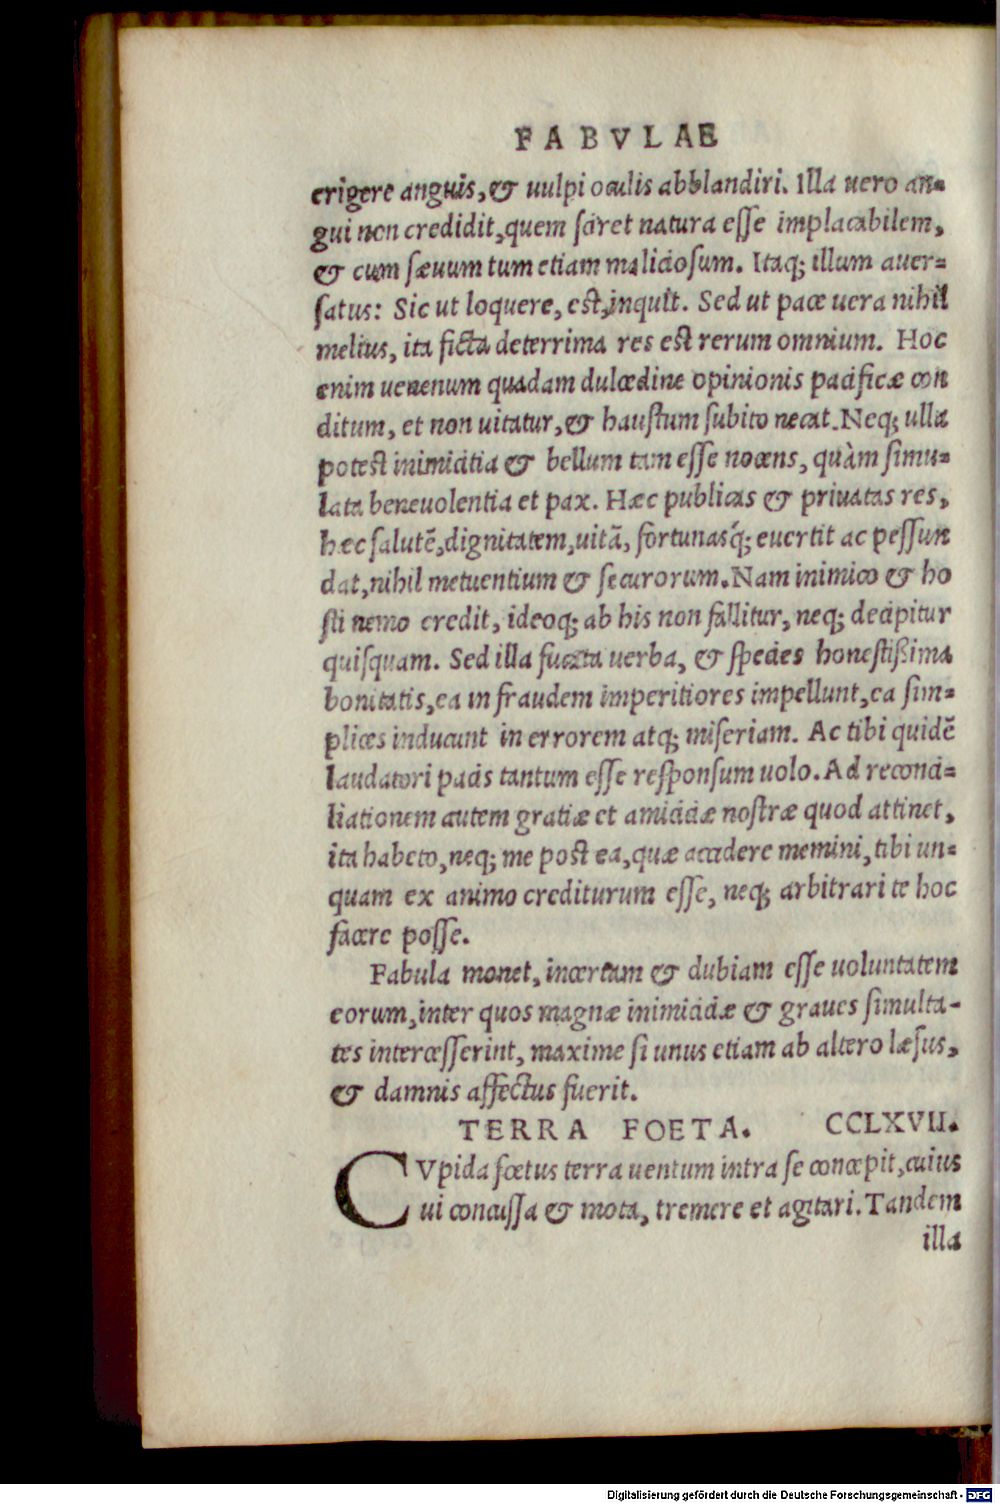 FABVLAE
erigere anguis, & uulpi oculis abblandiri. Illa uero an-
gui non credidit, quem sciret natura esse implacabilem,
& cum sæuum tum etiam maliciosum. Itaq; illum auer-
satus: Sic ut loquere, est, inquit. Sed ut pace uera nihil
melius, ita ficta deterrima res est rerum omnium. Hoc
enim uenenum quadam dulcedine opinionis pacificæ con
ditum, et non uitatur, & haustum subito necat. Neq; ulla
potest inimicitia & bellum tam esse nocens, quàm simu-
lata beneuolentia et pax. Hæc publicas & priuatas res,
hæc salutē, dignitatem, uitā, fortunasq́; euertit ac pessun
dat, nihil metuentium & securorum. Nam inimico & ho
sti nemo credit, ideoq; ab his non fallitur, neq; decipitur
quisquam. Sed illa fucata uerba, & species honestißima
bonitatis, ea in fraudem imperitiores impellunt, ea sim-
plices inducunt in errorem atq; miseriam. Ac tibi quidē
laudatori pacis tantum esse responsum uolo. Ad reconci-
liationem autem gratiæ et amiciciæ nostræ quod attinet,
ita habeto, neq; me post ea, quæ accidere memini, tibi un-
quam ex animo crediturum esse, neq; arbitrari te hoc
facere posse.
Fabula monet, incertam & dubiam esse uoluntatem
eorum, inter quos magnæ inimiciciæ & graues simulta-
tes intercesserint, maxime si unus etiam ab altero læsus,
& damnis affectus fuerit.
TERRA FOETA. CCLXVII.
CVpida fœtus terra uentum intra se concepit, cuius
ui concussa & mota, tremere et agitari. Tandem
illa
Digitalisierung gefördert durch die Deutsche Forschungsgemeinschaft - DFG